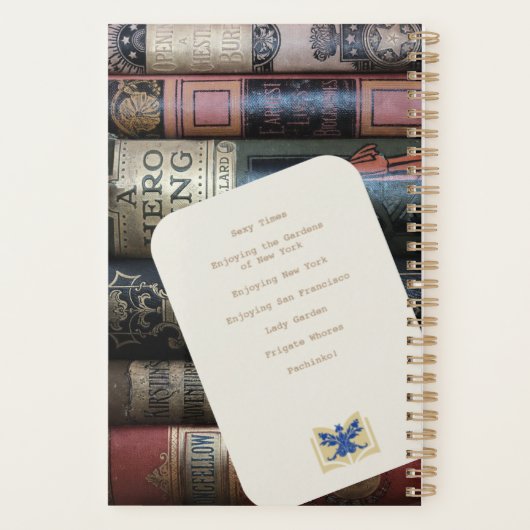 OPENIN
A
CHESTN
BUR
EARNEST
LIVES
BIOGRAPHIES
A
HERO
ING
LLARD
Sexy Times
Enjoying the Gardens
of New York
Enjoying New York
Enjoying San Francisco
Lady Garden
Frigate Whores
Pachinko!
KIRSTIN'S
ADVENTURE
NGFELLOW